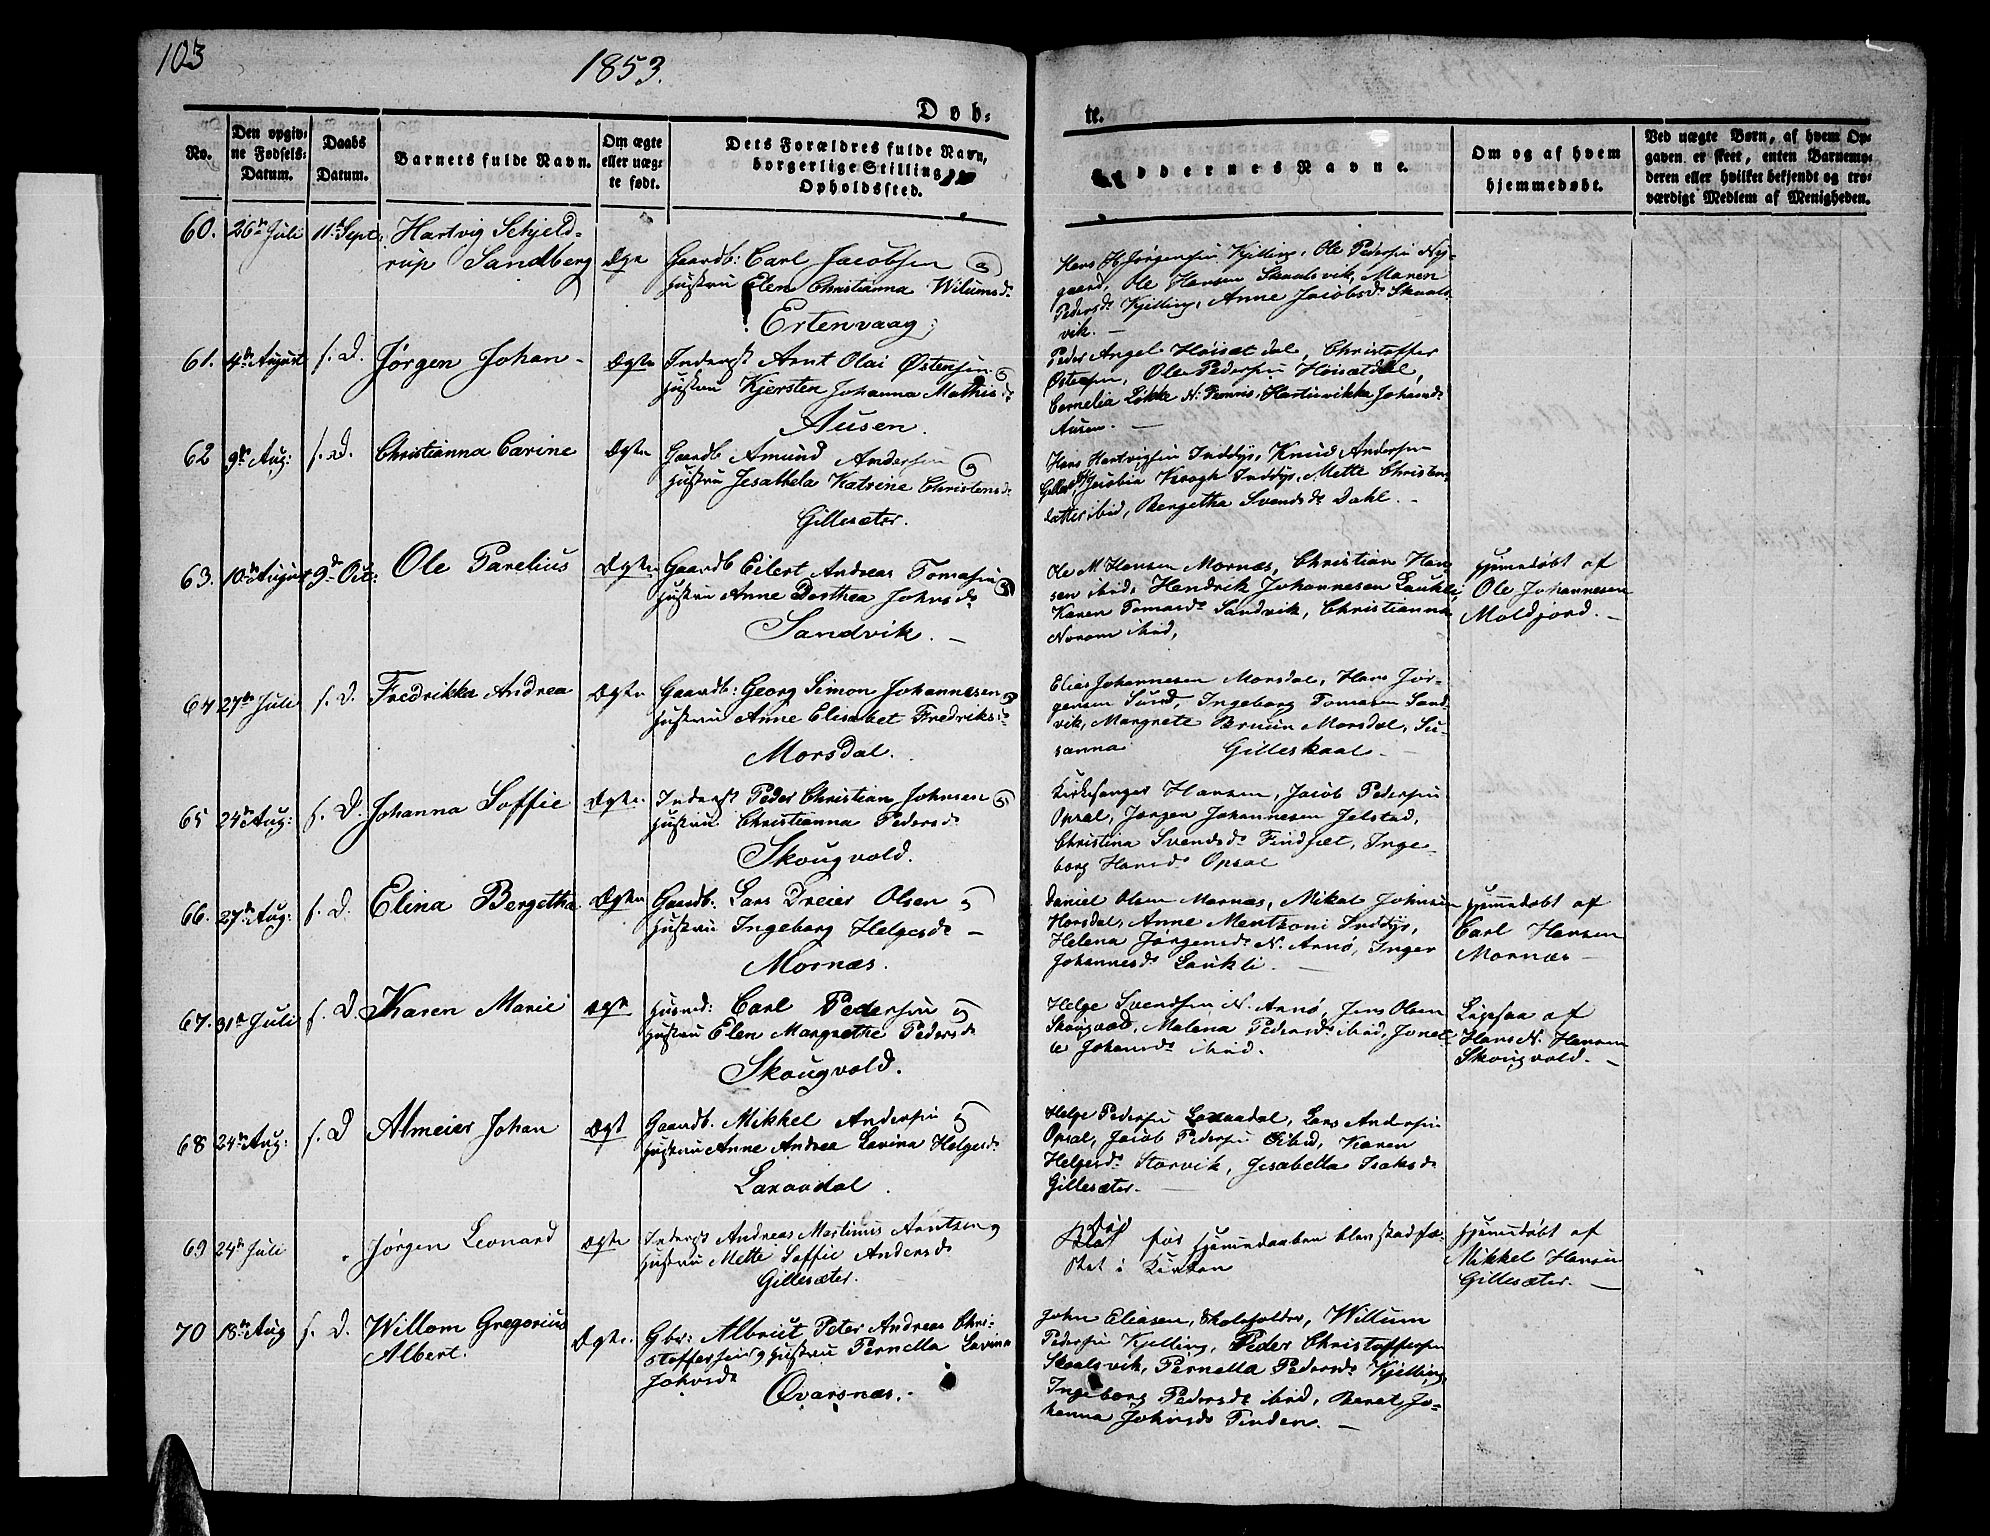 103
1853.
Døb-
te.
No.
Den opgiv-
ne Fødsels-
Datum.
Daabs
Datum.
Barnets fulde Navn.
Om ægte
eller uæg-
te født.
Dets Forældres fulde Navn,
borgerlige Stilling
Opholdssted.
Faddernes Navne.
Om og af hvem
hjemmedøbt.
Ved uægte Børn, af hvem Op-
gaven er skeet, enten Barnemo-
deren eller hvilket bekjendt og tro-
værdigt Medlem af Menigheden.
60. 26de Juli 11te Sept. Hartvig Schjeld-
rup Sandberg Ægte
Gaardb: Carl Jacobsen og
Hustru Elen Christianna Wilumsdr
Ertenvaag,
Hans H Jørgensen Kjelling, Ole Pedersen Ny-
gaard, Ole Hansen Skaalsvik, Maren
Pedersdr Kjelling, Anne Jacobsdr Skaals-
vik. —
61. 4de August s. D. Jørgen Johan - Ægte
Inderst Arnt Olai Østensen og
Hustru Kjersten Johanna Mathisdr
Ausen.
Peder Angel Høisætdal, Christoffer
Østensen, Ole Pedersen Høisætdal,
Cornelia Løkke N. , Hartvikka Johansdr
Ausen. —
62 9de Aug: s. D. Christianna Carine Ægte
Gaardb Amund Andersen og
Hustru Jesabhela Katrine Christensdr
Gillesæter.
Hans Hartvigsen Inddyr, Knud Andersen
Gilles. Jacobia Krogh Inddyr, Mette Christens
datter ibid, Bergetha Svendsdr Dahl. -
63. 10de August 9de Oct: Ole Parelius Ægte
Gaardb Eilert Andreas Tomassen og
Hustru Anne Dorthea Johnsdr
Sandvik. —
Ole M Hansen Mornæs, Christian Han-
sen ibid, Hendrik Johannesen Laukli,
Karen Tomasdr Sandvik, Christianna
Norom ibid,
Hjemmedøbt af
Ole Johannesen
Moldjord. —
64 27de Juli s. D. Fredrikka Andrea Ægte
Gaardb: Georg Simon Johannesen og
Hustru Anne Elisabet Fredriksdr
Morsdal.
Elias Johannesen Morsdal, Hans Jør-
gensen Sund, Ingeborg Tomasen Sand-
vik, Margrete Bruun Morsdal, Su-
sanna Gilleskaal -
65 24de Aug: s. D. Johanna Soffie Ægte.
Inderst Peder Christian Johnsen og
Hustru Christianna Pedersdr
Skougvold.
Kirkesanger Hansen, Jacob Pedersen
Opsal, Jørgen Johannesen Jelstad,
Christina Svendsdr Findset, Inge-
borg Hansdr Opsal
66. 27de Aug: s. D. Elina Bergetha Ægte
Gaardb. Lars Dreier Olsen og
Hustru Ingeborg Helgesdr —
Mornæs.
Daniel Olsen Mornæs, Mikal Johnsen
Horsdal, Anne Mentzoni Inddyr,
Helena Jørgensdr N. Arnø, Inger
Johannesdr Laukli. —
Hjemmedøbt af
Carl Hansen
Mornæs —
67. 31te Juli s. D Karen Marie Ægte
Husmd: Carl Pedersen og
Hustru Elen Margrethe Pedersdr
Skougvold.
Helge Svendsen N. Arnø, Jens Olsen
Skougvold, Malena Pedersdr ibid, Jonet-
te Johansdr ibid.
Ligesaa af
Hans N. Hansen
Skougvold. —
68 24de Aug: s. D Almeier Johan Ægt
Gaardb. Mikkel Andersen og
Hustru Anne Andrea Lavina Helgesdr
Laxaadal.
Helge Pedersen Laxaadal, Lars Andersen
Opsal, Jacob Pedersen ibid, Karen
Helgesdr Storvik, Jesabella Isaksdr
Gillesæter. —
69 24de Juli Jørgen Leonard Ægte
Inderst Andreas Martinus Arntsen og
Hustru Mette Soffie Andersdr
Gillesæter.
Død før Hjemmedaaben blev stadfæ-
stet i Kirken
Hjemmedøbt af
Mikkel Hansen
Gillesæter. —
70 18de Aug s. D. Willom Gregorius
Albert. Ægte.
Gbr: Albrigt Peter Andreas Chri-
stoffersen og Hustru Pernella Lavina
Johnsdr
Qvarsnæs. -
John Eliasen, Skoleholder, Willum
Pedersen Kjelling, Peder Christoffersen
Skaalsvik, Pernella Pedersdr Kjelling
Ingeborg Pedersdr ibid, Beret Jo-
hanna Johnsdr Finden. —